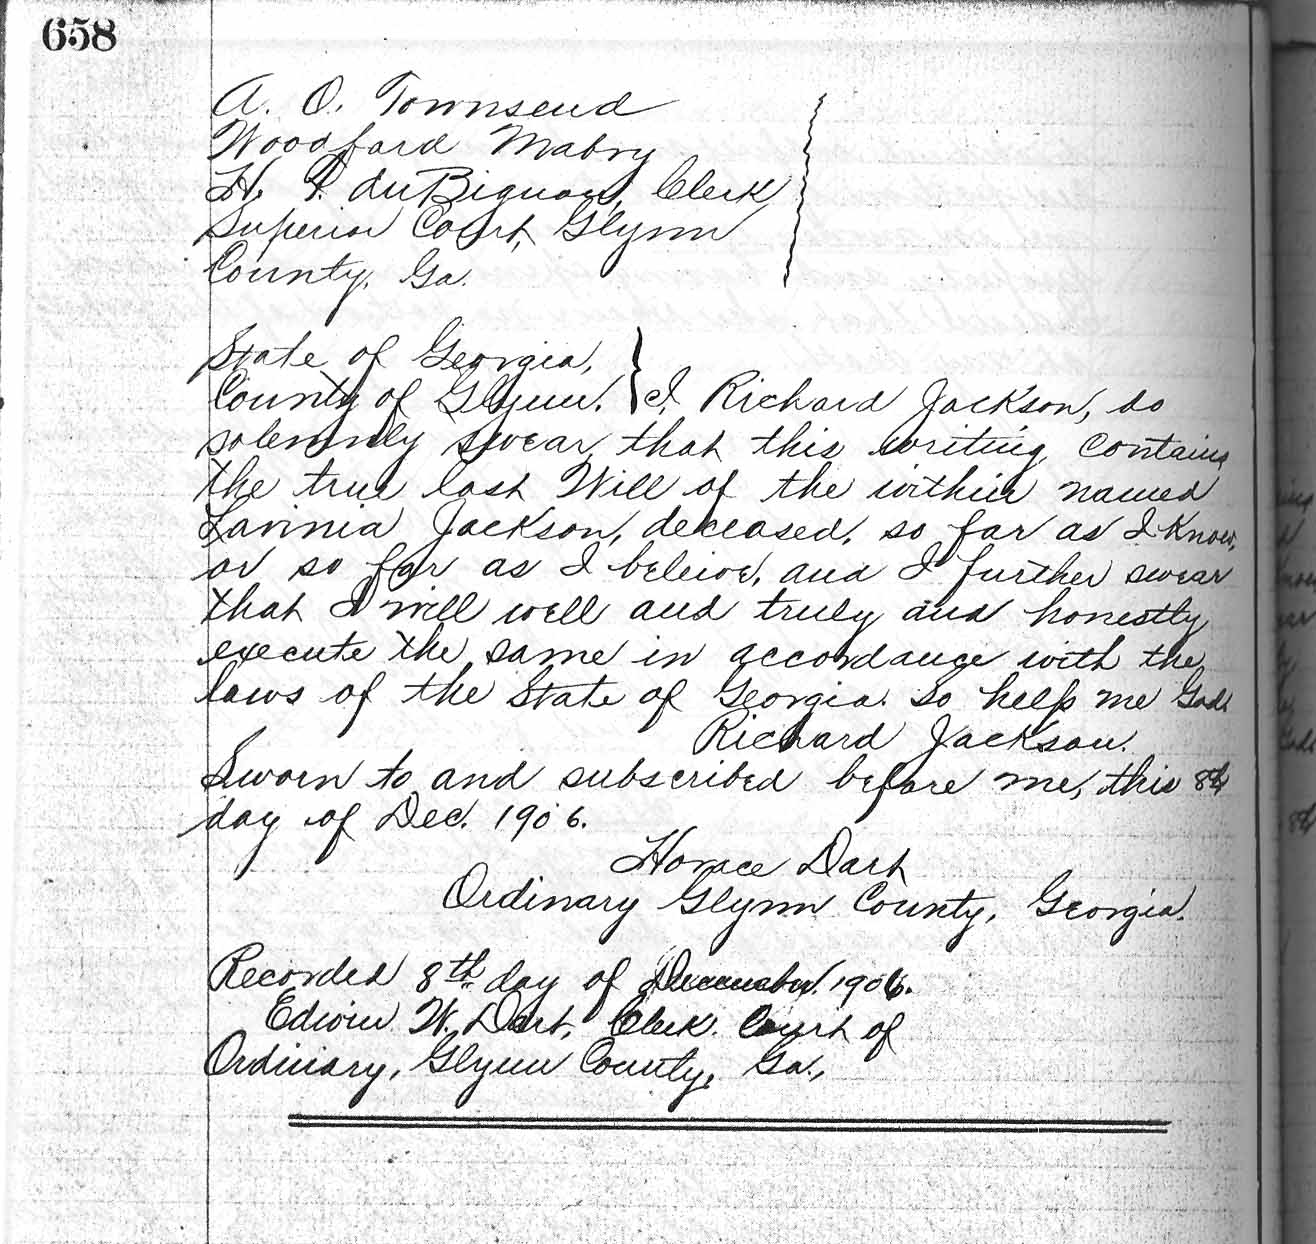 658
A. O. Townsend
Woodford Mabry
H. F. duBignon, Clerk
Superior Court, Glynn
County, Ga.
State of Georgia,
County of Glynn. } I, Richard Jackson, do
solemnly swear that this writing contains
the true last Will of the within named
Lavinia Jackson, deceased, so far as I know,
or so far as I beleive, and I further swear
that I will well and truly and honestly
execute the same in accordance with the
laws of the State of Georgia. So help me God.
Richard Jackson.
Sworn to and subscribed before me, this 8th
day of Dec. 1906.
Horace Dart
Ordinary Glynn County, Georgia.
Recorded 8th day of December. 1906.
Edwin W. Dart, Clerk. Court of
Ordinary, Glynn County, Ga.,